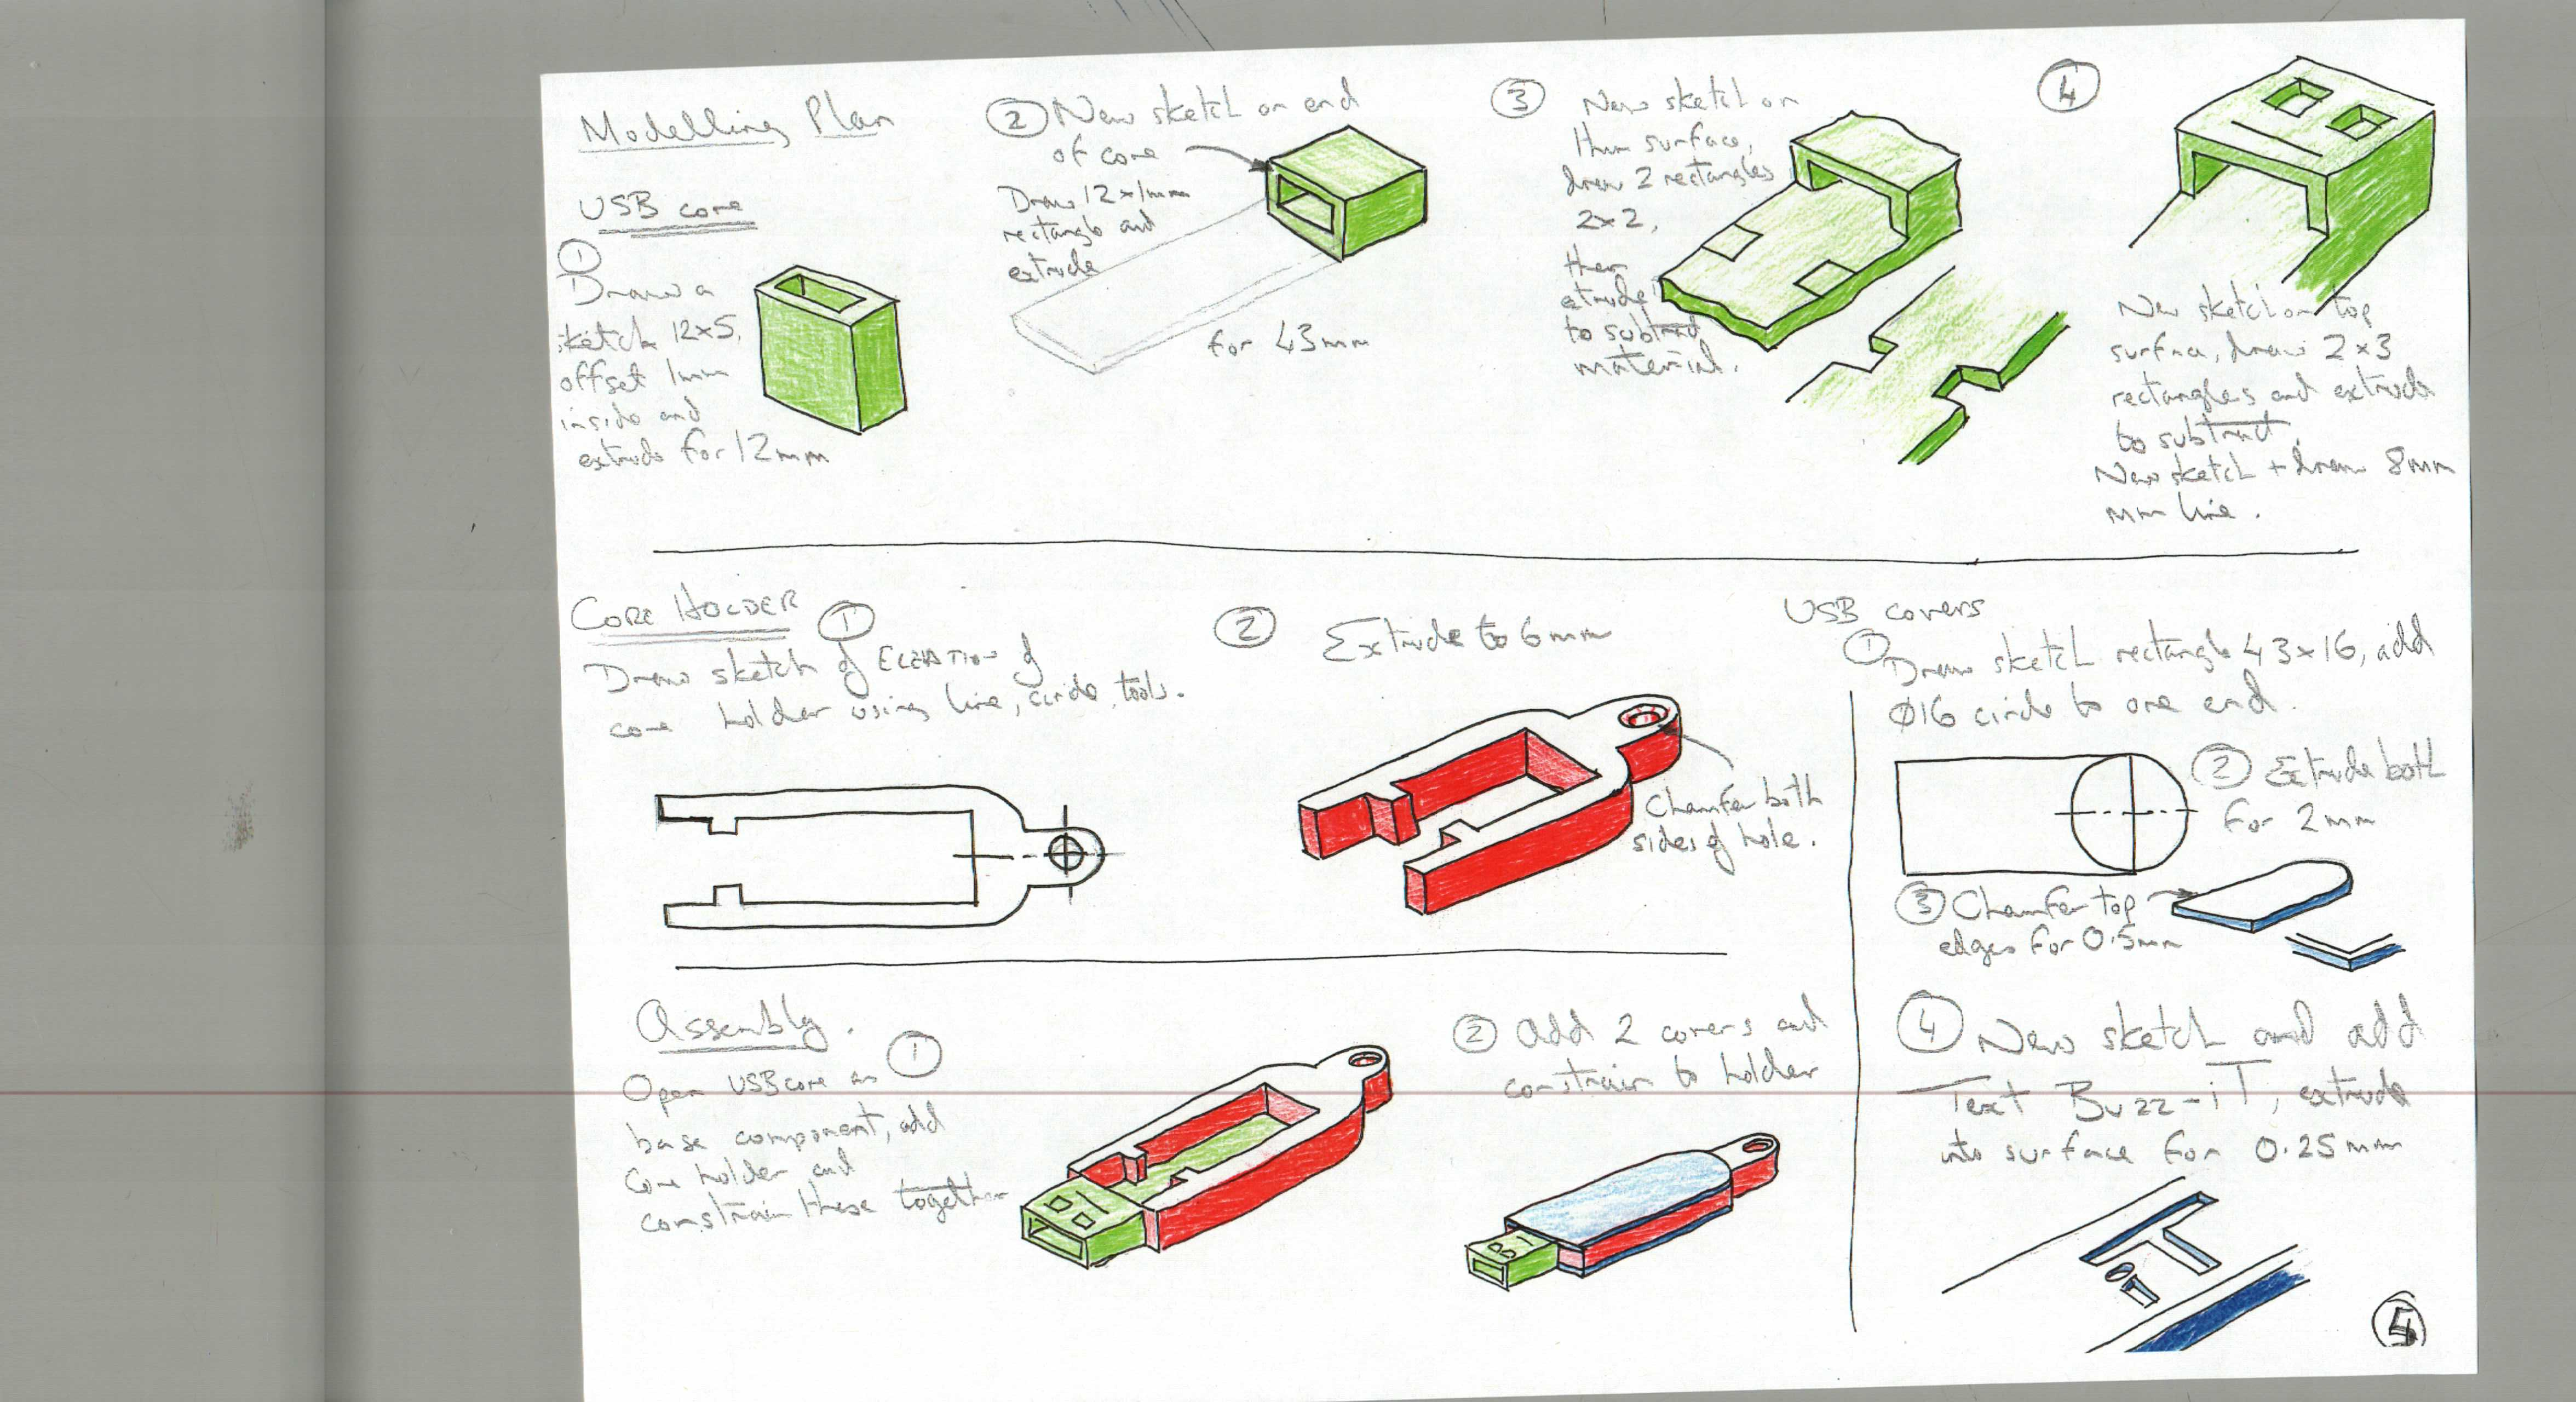 Modelling Plan
USB core
①
Draw a
sketch 12x5,
offset 1mm
inside and
extrude for 12mm
② New sketch on end
of core
Draw 12x1mm
rectangle and
extrude
for 43mm
③ New sketch on
thin surface,
draw 2 rectangles
2x2,
then
etrude
to subtract
material.
④
New sketch on top
surface, draw 2x3
rectangles and extrude
to subtract.
New sketch + draw 8mm
mm line.
CORE HOLDER ①
Draw sketch of ELEVATION of
core holder using line, circle, tools.
② Extrude to 6mm
Chamfer both
sides of hole.
USB covers
① Draw sketch rectangle 43x16, add
Ø16 circle to one end.
② Extrude both
for 2mm
③ Chamfer top
edges for 0.5mm
④ New sketch and add
Text Buzz-iT, extrude
into surface for 0.25mm
iT
Assembly.
①
Open USB core as
base component, add
Core holder and
constrain these together
② Add 2 covers and
constrain to holder
5